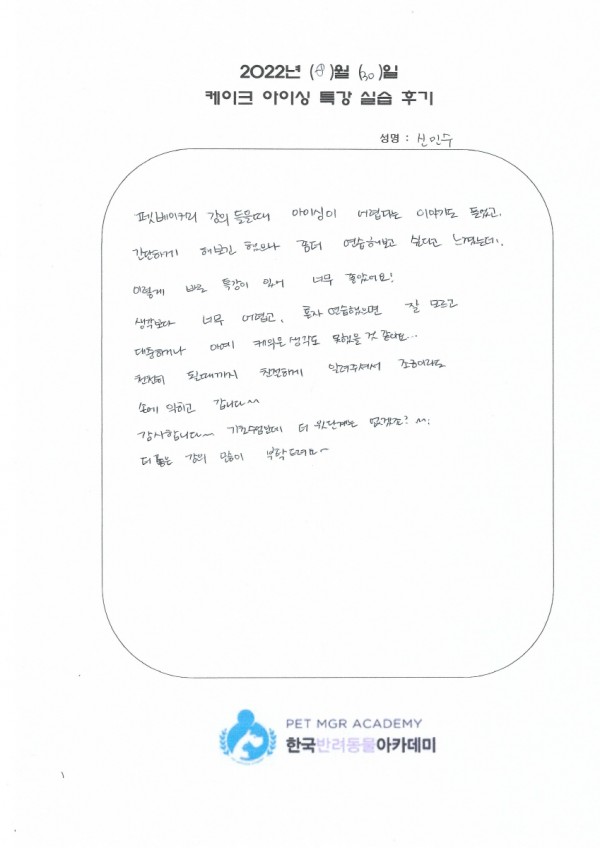 2022년 (8)월 (30)일
케이크 아이싱 특강 실습 후기
성명 : 신민수
펫베이커리 강의 들을때 아이싱이 어렵다는 이야기도 들었고,
간단하게 해보긴 했으나 좀더 연습해보고 싶다고 느꼈는데,
이렇게 바로 특강이 있어 너무 좋았어요!
생각보다 너무 어렵고, 혼자 연습했으면 잘 모르고
대충하거나 아예 케익은 생각도 못했을 것 같아요...
천천히 될때까지 친절하게 알려주셔서 조금이라도
손에 익히고 갑니다^^
감사합니다~ 기초수업인데 더 윗단계는 없겠죠? ^^;
더 좋은 강의 많이 부탁드려요~
PET MGR ACADEMY
한국반려동물아카데미